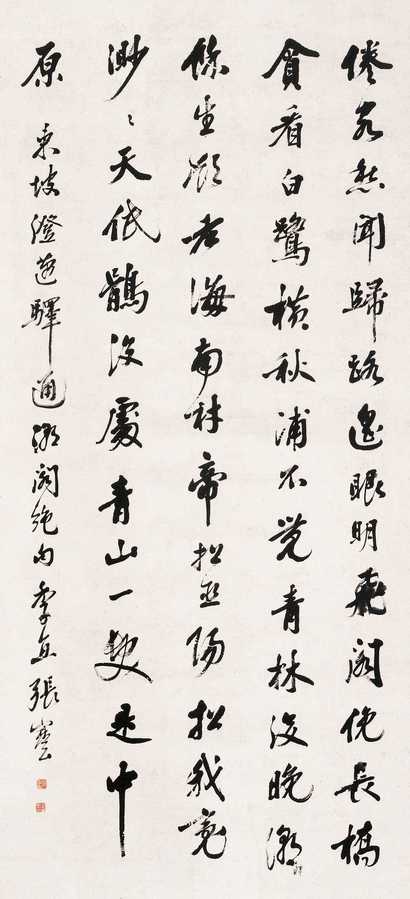 倦客愁聞歸路遙眼明飛閣俯長橋
貪看白鷺橫秋浦不覺青林沒晚潮
餘生老海南村帝招巫陽招我魂
渺〻天低鶻沒處青山一髮是中
原 東坡澄邁驛通潮閣絕句 季直張謇